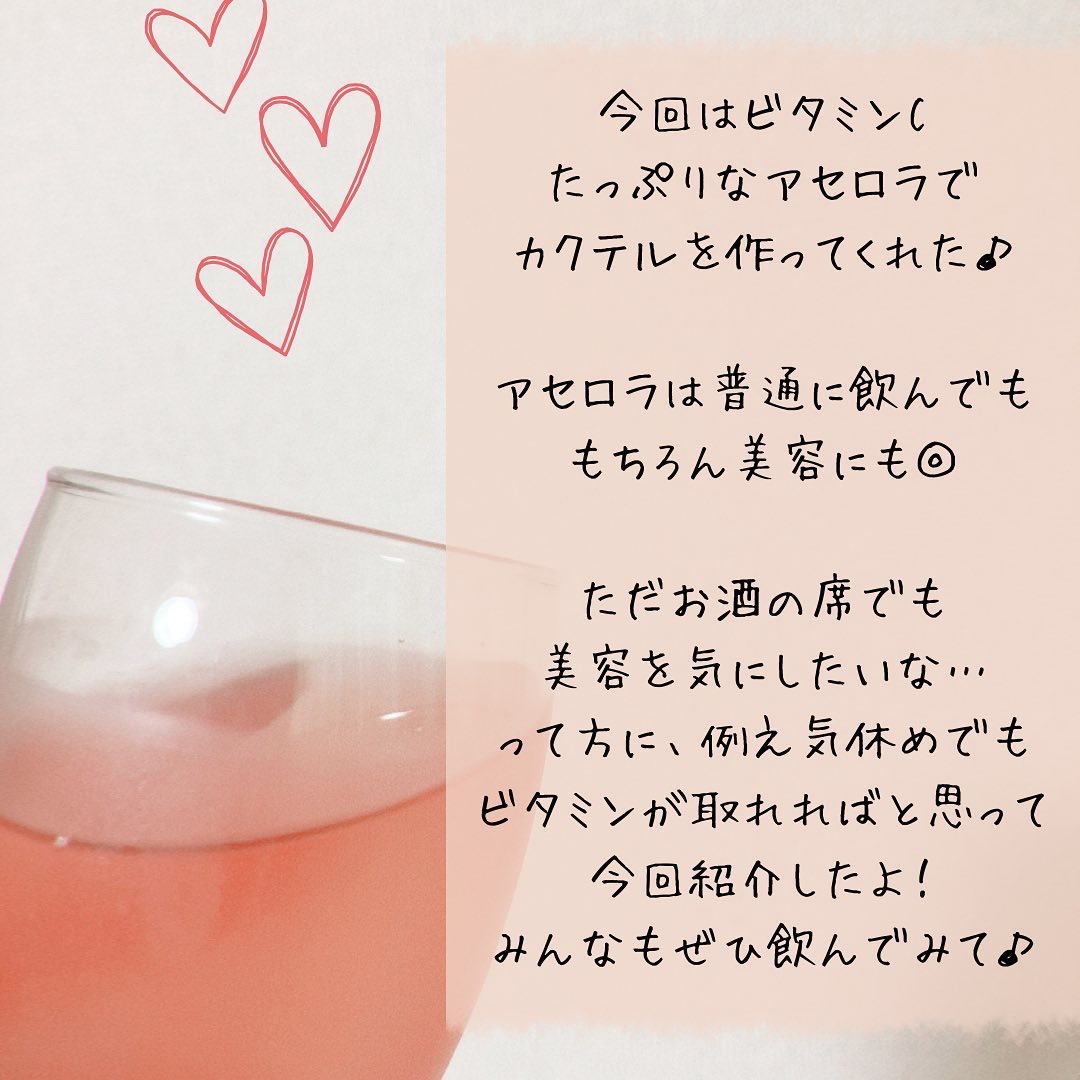 今回はビタミンC
たっぷりなアセロラで
カクテルを作ってくれた♪
アセロラは普通に飲んでも
もちろん美容にも◎
ただお酒の席でも
美容を気にしたいな…
って方に、例え気休めでも
ビタミンが取れればと思って
今回紹介したよ!
みんなもぜひ飲んでみて♪